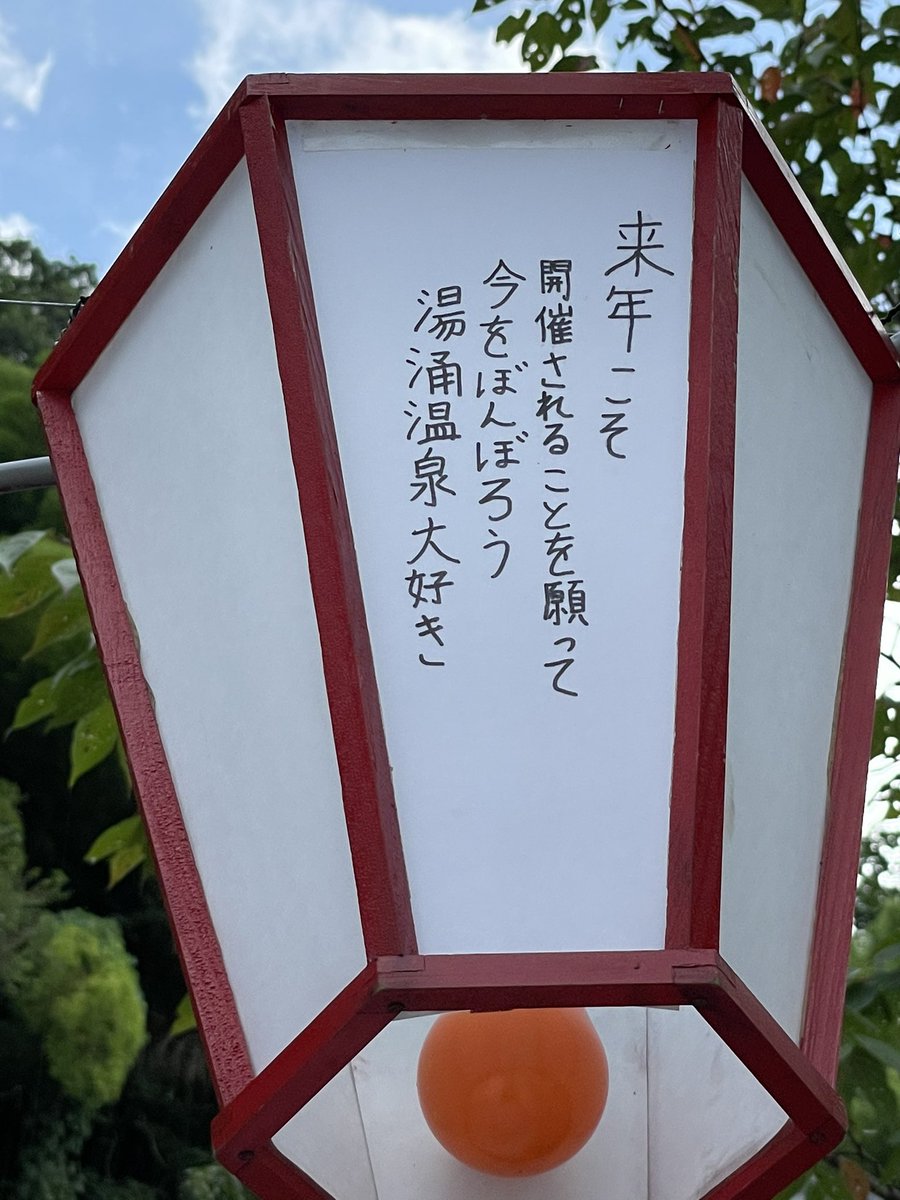 来年こそ
開催されることを願って
今をぼんぼろう
湯涌温泉大好き」